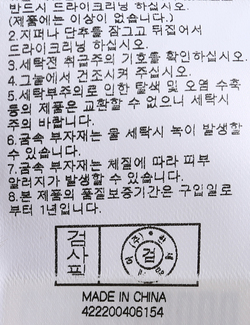 반드시 드라이크리닝 하십시오.
(제품에는 이상이 없습니다.)
2.지퍼나 단추를 잠그고 뒤집어서
드라이크리닝 하십시오.
3.세탁전 취급주의 기호를 확인하십시오.
4.그늘에서 건조시켜 주십시오.
5.세탁부주의로 인한 탈색 및 오염 수축
등의 제품은 교환할 수 없으니 세탁시
주의 바랍니다.
6.금속 부자재는 물 세탁시 녹이 발생할
수 있습니다.
7.금속 부자재는 체질에 따라 피부
알러지가 발생할 수 있습니다.
8.본 제품의 품질보증기간은 구입일로
부터 1년입니다.
검사필
검
MADE IN CHINA
422200406154